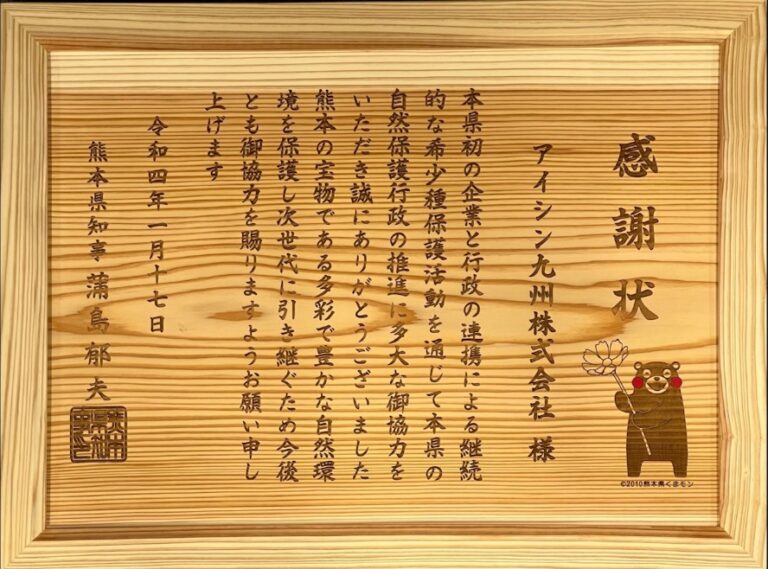 感謝状
アイシン九州株式会社 様
本県初の企業と行政の連携による継続
的な希少種保護活動を通じて本県の
自然保護行政の推進に多大な御協力を
いただき誠にありがとうございました
熊本の宝物である多彩で豊かな自然環
境を保護し次世代に引き継ぐため今後
とも御協力を賜りますようお願い申し
上げます
令和四年一月十七日
熊本県知事 蒲島郁夫
©2010熊本県くまモン